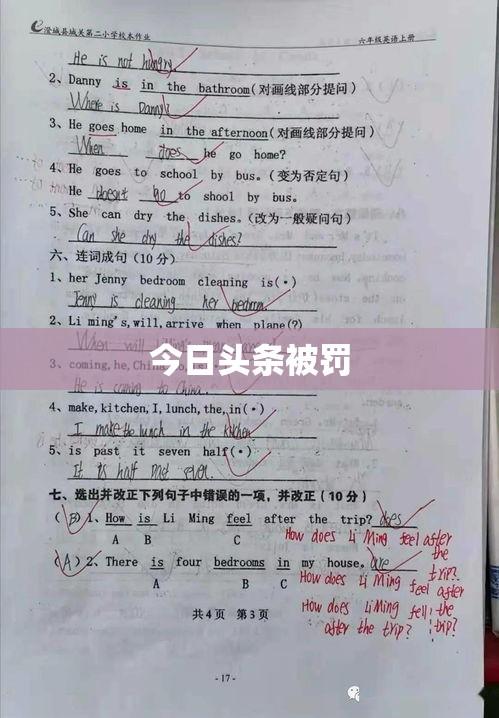 澄城县城关第二小学校本作业 六年级英语上册
He is not hungry.
2、Danny is in the bathroom(对画线部分提问)
Where is Danny?
3、He goes home in the afternoon(对画线部分提问)
When does he go home?
4、He goes to school by bus.(变为否定句)
He doesn't go to shool by bus.
5、She can dry the dishes.(改为一般疑问句)
Can she dry the dishes?
六、连词成句(10分)
1、her Jenny bedroom cleaning is(.)
Jenny is cleaning her bedroom.
2、Li ming's,will,arrive when plane(?)
今日头条被罚
3、coming,he,
He is coming to China.
4、make,kitchen,I,lunch,the,in(.)
I make the lunch in the kitchen
5、is past it seven half(.)
It is half past seven.
七、选出并改正下列句子中错误的一项,并改正(10分)
(B)1、How is Li Ming feel after the trip? does
A B C
How does Li Ming feel after the trip?
(A)2、There is four bedrooms in my house. are
A B C
How does Li Ming feel after the trip?
How does Li Ming fell after the trip?
共4页 第3页
-17-